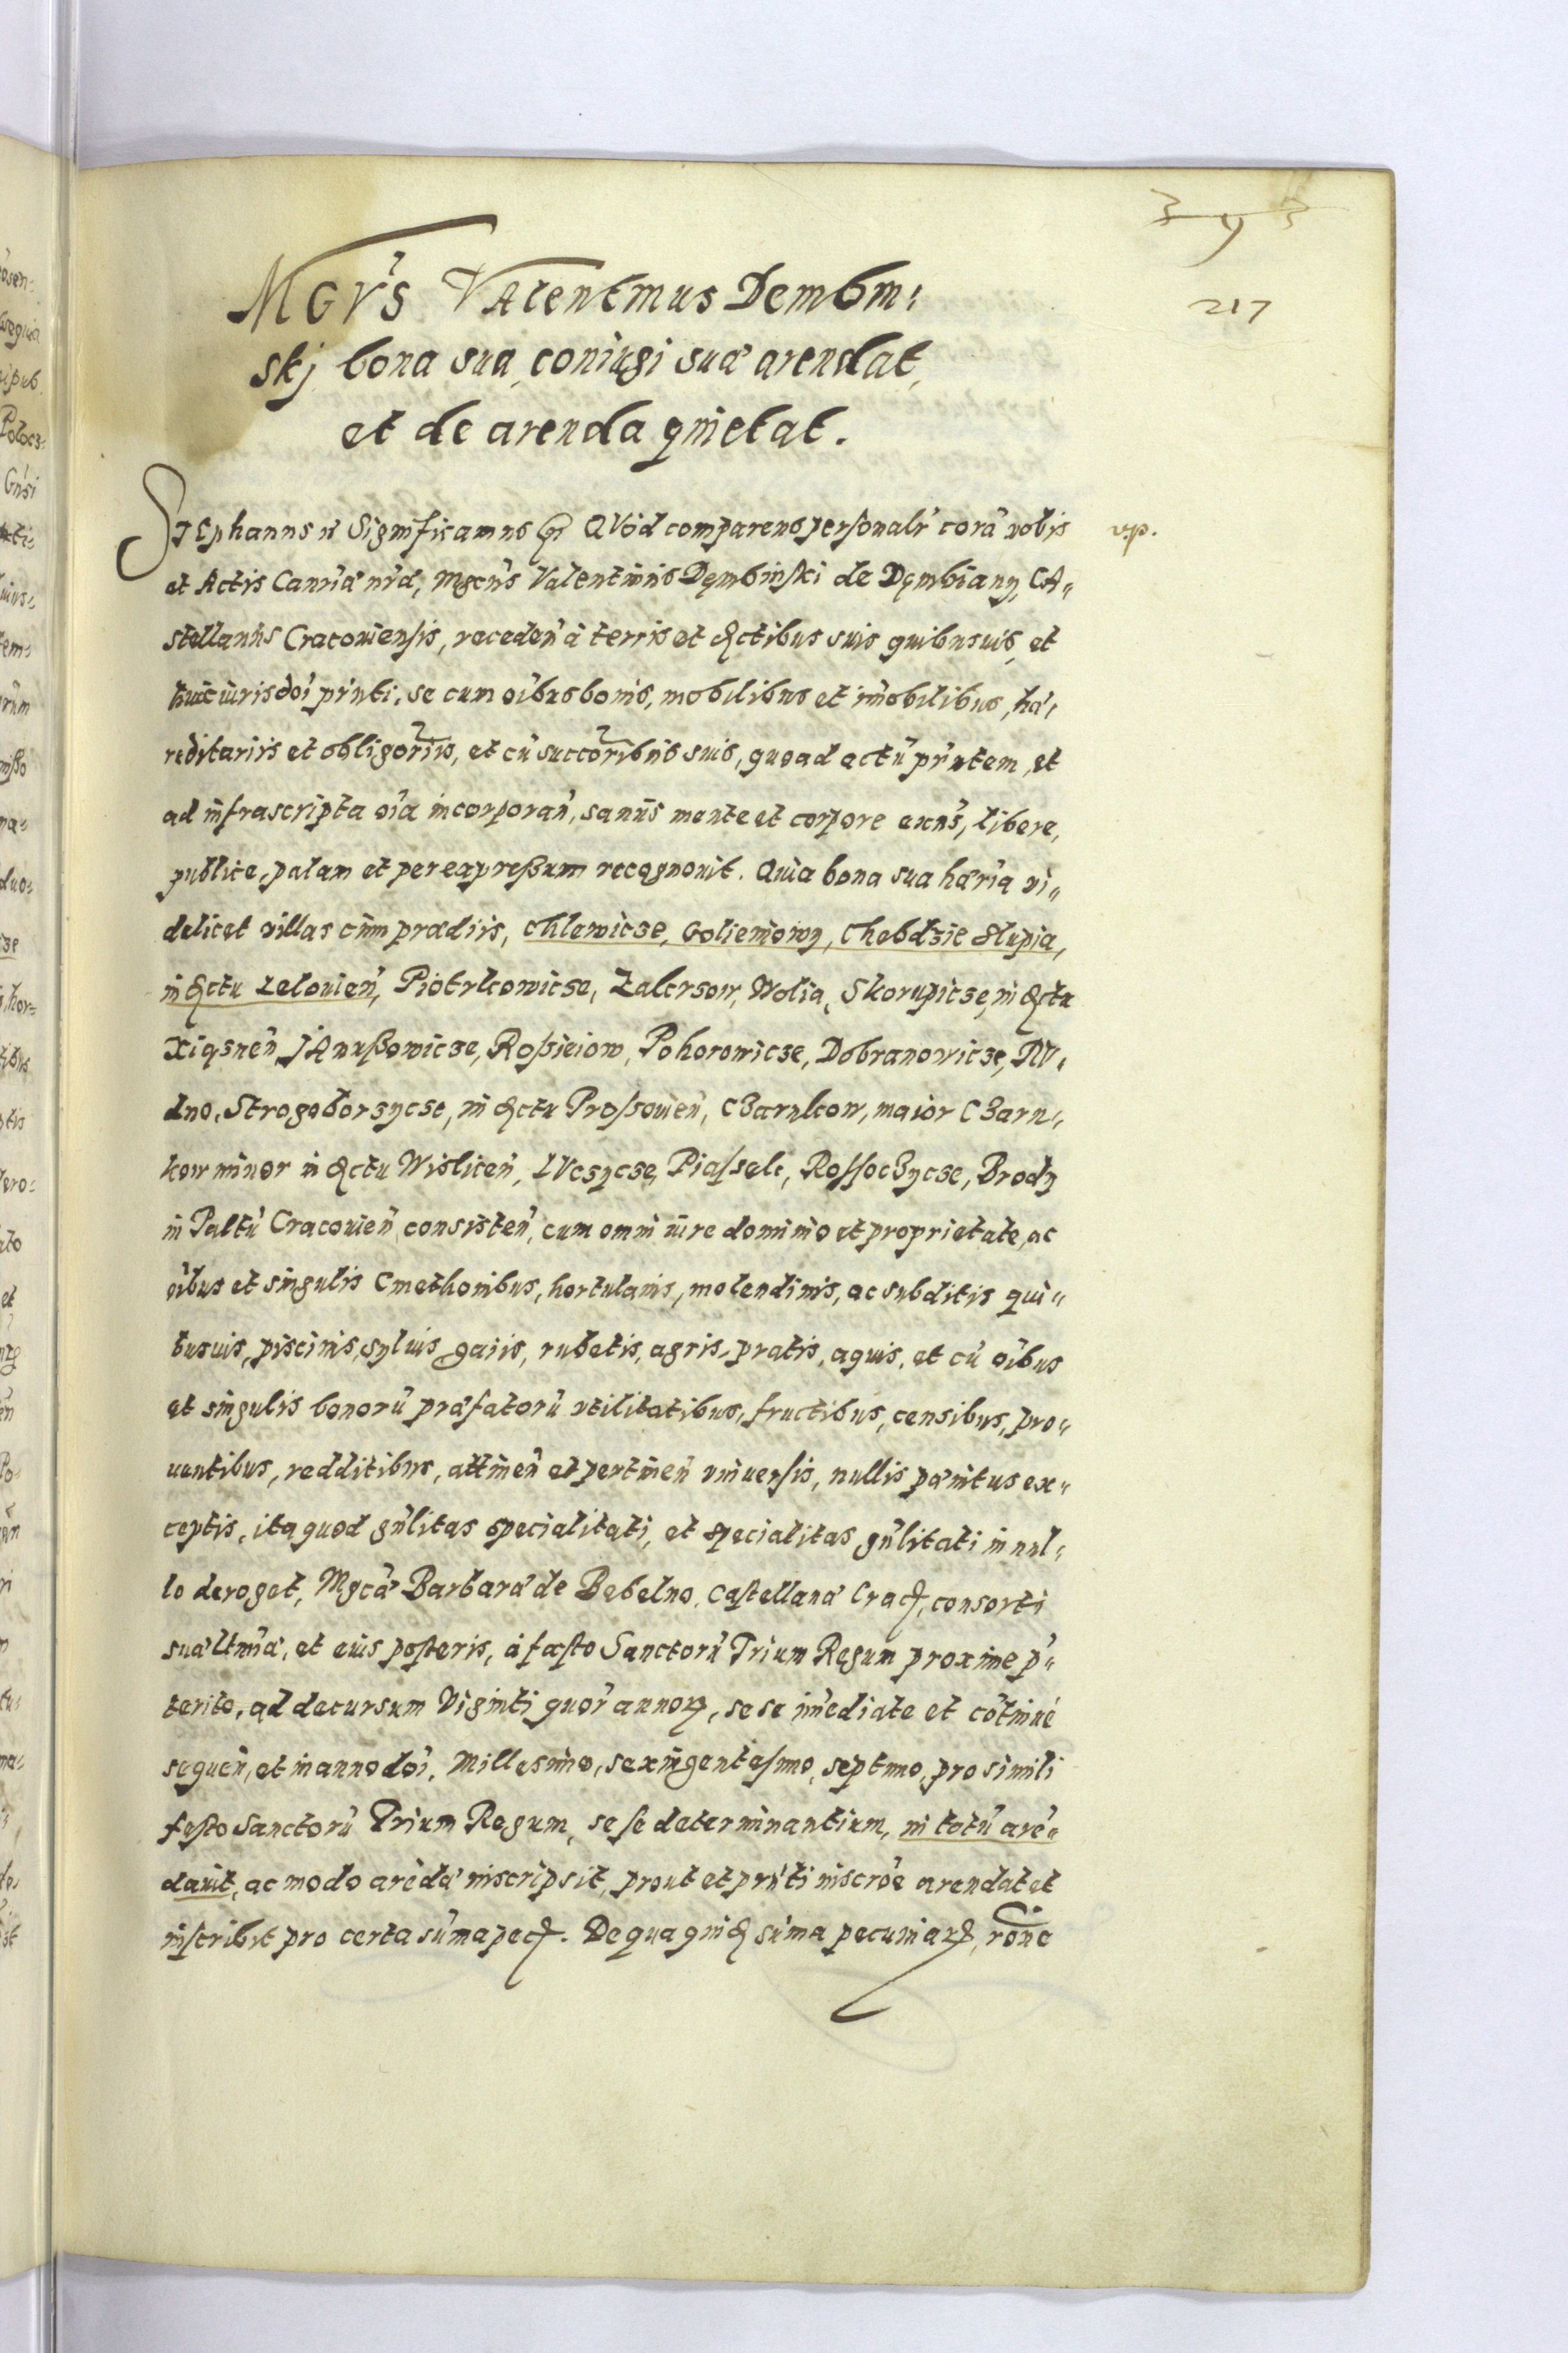 217
MGCVS Valentinus Dembin:
skj bona sua coniugi suæ arendat
et de arenda quietat.
Stephanus Significamus Quod comparens personalr corā nobis
v.p.
et Actis Canriæ nrā, Mgcūs Valentinus Dęmbinski de Dęmbiany, CA„
stellanus Cracouiensis, receden à terris et dctibus suis quibusuis, et
huic iurisdoi pr̄nti, se cum oībus bonis, mobilibus et imobilibus, hæ,
reditariis et obligoriis, et cū succoribus suis, quoad actū pr̄ntem, et
ad infrascripta oīa incorporan̄, sanus mente et corpore exn̄s, libere,
publice, palam et per expreßum recognouit. Quia bona sua hæria vi„
delicet villas cum prædiis, Chlewicze, Golieniowy, Chebdzie Slupia,
in dctu Lelouien̄, Piotrkowicze, Zakrzow, Wolia, Skorupicze, in dctu
Xiqsnen̄ JAnußowicze, Roßieiow, Pohorowicze, Dobranowicze, RV,
dno, Strogoborzycze, in dctu Proßouien̄, Czarnkow, maior Czarn,
kow minor in dctu Wislicen̄, LVczycze, Piassek, Rossoczycze, Brody
in Paltū Cracouien̄ consisten̄, cum omni iure dominio et proprietate, ac
oībus et singulis Cmethonibus, hortulanis, molendinis, ac subditis qui„
busuis, piscinis, syluis, gaiis, rubetis, agris, pratis, aquis, et cū oībus
et singulis bonorū præfatorū vtilitatibus, fructibus, censibus, pro„
uentibus, redditibus, attinen̄ et pertinen̄ vniuersis, nullis pænitus ex„
ceptis, ita quod gn̄litas specialitati, et specialitas gn̄litati in nul„
lo deroget, Mgcæ Barbaræ de Bebelno, Castellanæ Crac, consorti
suæ ltm̄æ, et eius posteris, à festo Sanctorū Trium Regum proxime p̄„
terito, ad decursum Viginti quor annor, sese imediate et cōtinuè
sequen̄, et in anno doī, Millesimo, sexingentesimo, septimo, pro simili
festo Sanctorū Trium Regum, sese determinantium, in totū arē„
dauit, ac modo arēdæ inscripsit, prout et pr̄nti inscroe arendat et
inscribit pro certa sūma pec. De qua quid sūma pecuniar, rōne